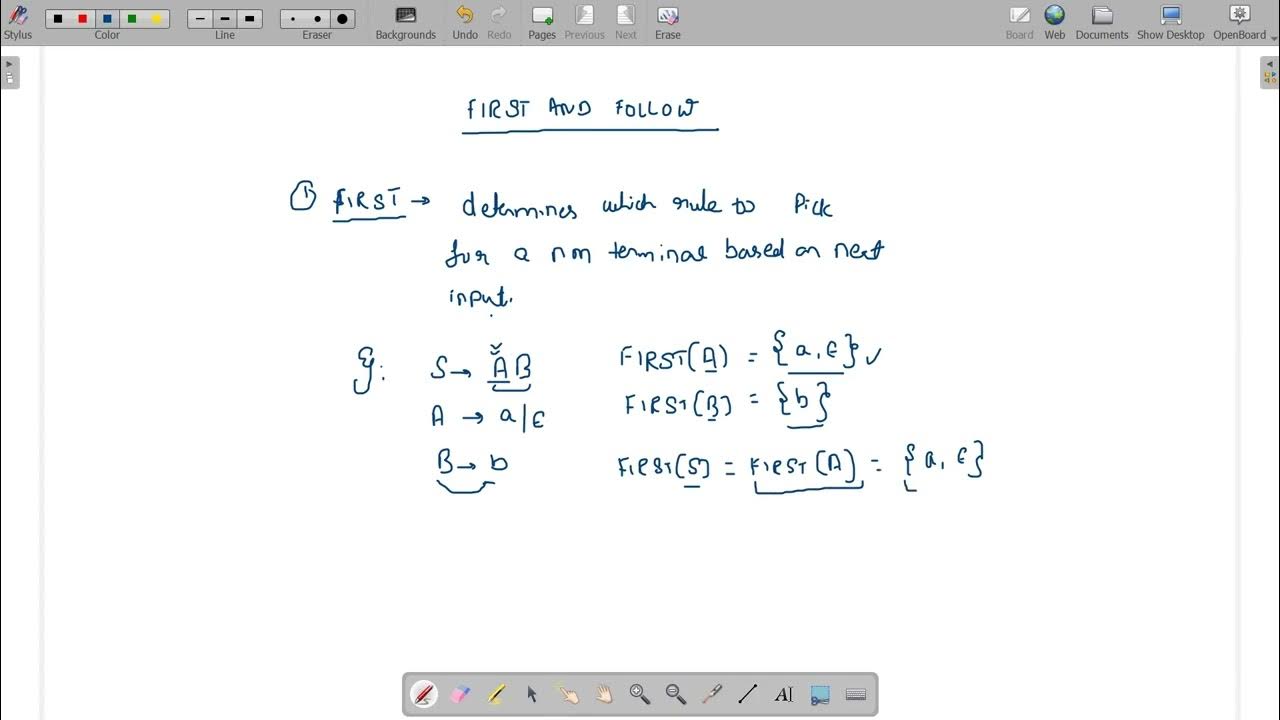 Stylus
Color
Line
Eraser
Backgrounds
Undo
Redo
Pages
Previous
Next
Erase
Board
Web
Documents
Show Desktop
OpenBoard
FIRST AND FOLLOW
① FIRST → determines which rule to Pick
for a non terminal based on next
input.
Eg: S → AB FIRST(A) = {a, ϵ} ✓
A → a|ϵ FIRST(B) = {b}
B → b FIRST(S) = FIRST(A) = {a, ϵ}
AI